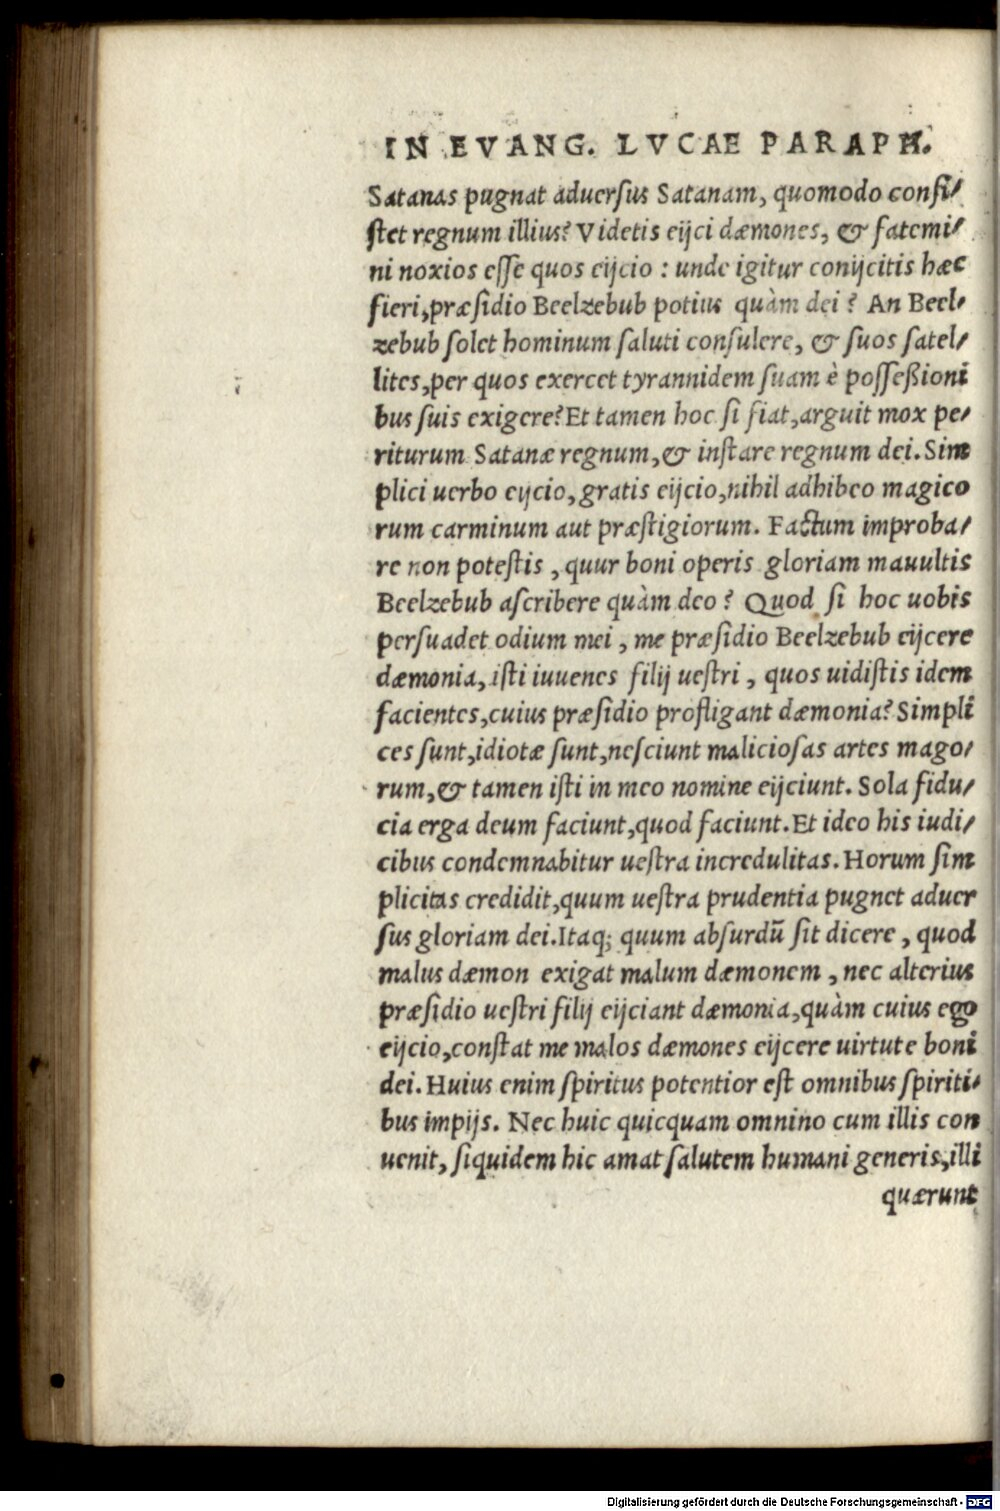 IN EVANG. LVCAE PARAPH.
Satanas pugnat aduersus Satanam, quomodo consi/
stet regnum illius? Videtis eijci dæmones, & fatemi/
ni noxios esse quos eijcio : unde igitur conijcitis hæc
fieri, præsidio Beelzebub potius quàm dei ? An Beel/
zebub solet hominum saluti consulere, & suos satel/
lites, per quos exercet tyrannidem suam è possessioni
bus suis exigere? Et tamen hoc si fiat, arguit mox pe/
riturum Satanæ regnum, & instare regnum dei. Sim
plici uerbo eijcio, gratis eijcio, nihil adhibeo magico
rum carminum aut præstigiorum. Factum improba/
re non potestis , quur boni operis gloriam mauultis
Beelzebub ascribere quàm deo ? Quod si hoc uobis
persuadet odium mei , me præsidio Beelzebub eijcere
dæmonia, isti iuuenes filij uestri , quos uidistis idem
facientes, cuius præsidio profligant dæmonia? Simpli
ces sunt, idiotæ sunt, nesciunt maliciosas artes mago/
rum, & tamen isti in meo nomine eijciunt. Sola fidu/
cia erga deum faciunt, quod faciunt. Et ideo his iudi/
cibus condemnabitur uestra incredulitas. Horum sim
plicitas credidit, quum uestra prudentia pugnet aduer
sus gloriam dei. Itaq; quum absurdū sit dicere , quod
malus dæmon exigat malum dæmonem , nec alterius
præsidio uestri filij eijciant dæmonia, quàm cuius ego
eijcio, constat me malos dæmones eijcere uirtute boni
dei. Huius enim spiritus potentior est omnibus spiriti/
bus impijs. Nec huic quicquam omnino cum illis con
uenit, siquidem hic amat salutem humani generis, illi
quærunt
Digitalisierung gefördert durch die Deutsche Forschungsgemeinschaft - DFG